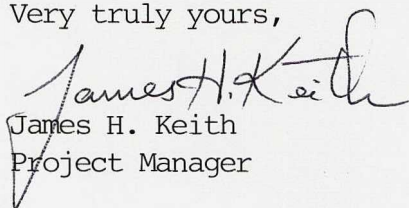 Very truly yours,
James H. Keith
James H. Keith
Project Manager